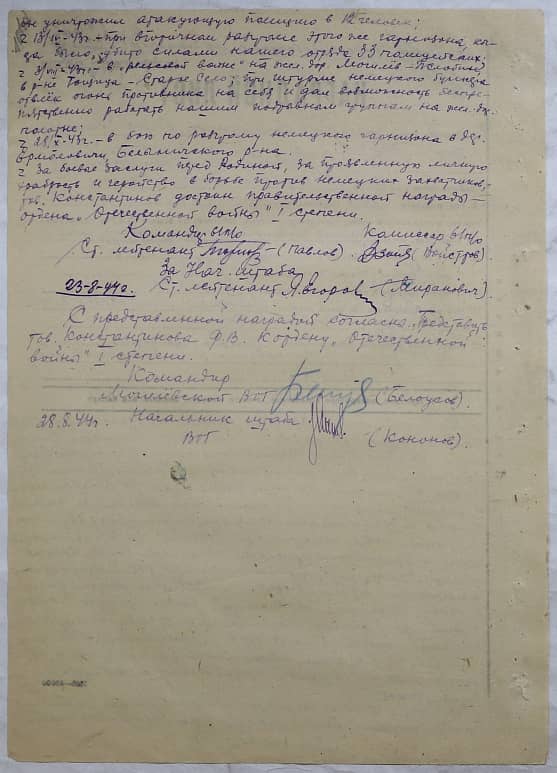 он уничтожил атакующую полицию в 12 человек;
при вторичном разгроме этого же гарнизона, ко-
гда было убито силами нашего отряда 33 полицейских;
в „рельсовой войне" на жел. дор. Могилев
в р-не Тощица - Старое Село; при штурме немецкого бункера
отвлек огонь противника на себя и дал возможность беспре-
пятственно работать нашим подрывным группам на жел. дор.
полотне;
в бою по разгрому немецкого гарнизона в д.
Белыничского р-на.
За боевые заслуги пред Родиной, за проявленную личную
храбрость и геройство в борьбе против немецких захватчиков,
тов. Константинов достоин правительственной награды —
ордена „Отечественной войны" I степени.
Командир в/п/о Комиссар в/п/о
Ст. лейтенант (Павлов).
За Нач. Штаба
23-8-44г. Ст. лейтенант (Миранович).
С представленной наградой согласен. Представить
тов. Константинова Ф.В. к ордену „Отечественной
войны" I степени.
Командир
Могилевской ВОГ (Белоусов).
28.8.44г. Начальник штаба
ВОГ (Кононов).